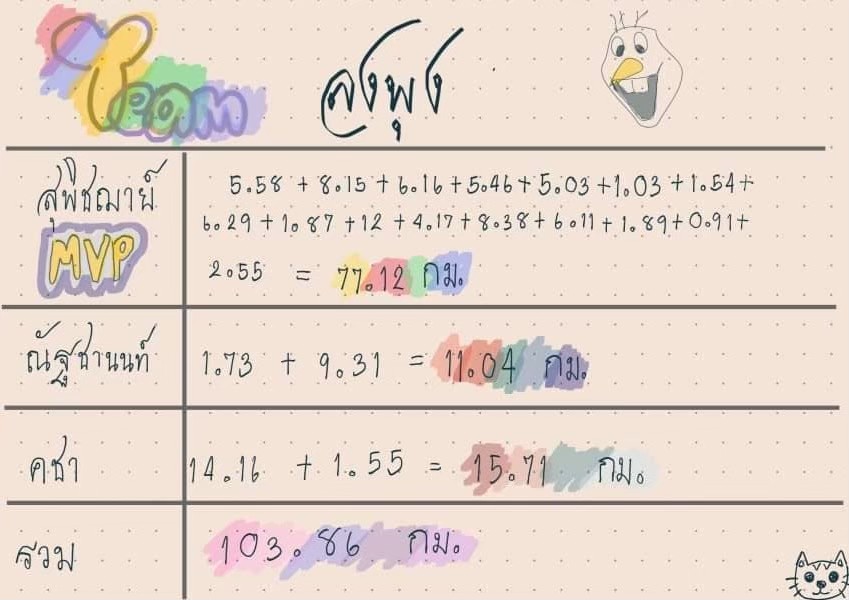 Team
ลงพุง
สุพิชฌาย์
MVP
5.58 + 8.15 + 6.16 + 5.46 + 5.03 + 1.03 + 1.54 +
6.29 + 1.87 + 12 + 4.17 + 8.38 + 6.11 + 1.89 + 0.91 +
2.55 = 77.12 กม.
ณัฐชานนท์
1.73 + 9.31 = 11.04 กม.
คชา
14.16 + 1.55 = 15.71 กม.
รวม
103.86 กม.